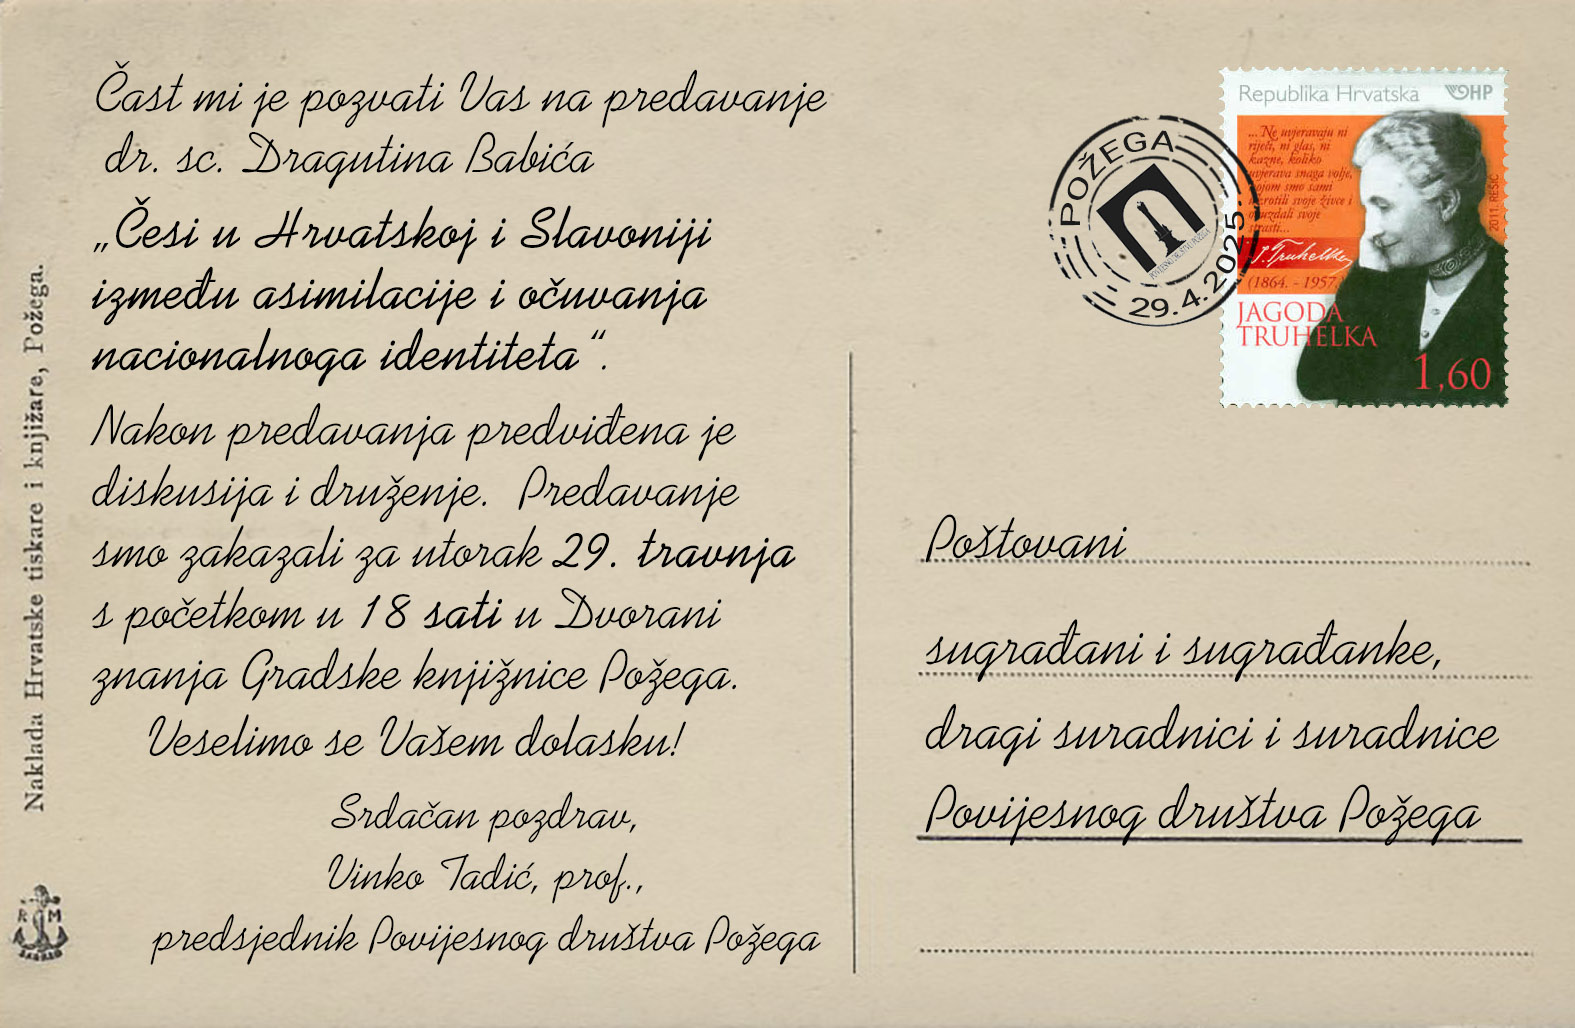 Čast mi je pozvati Vas na predavanje
dr. sc. Dragutina Babića
„Česi u Hrvatskoj i Slavoniji
između asimilacije i očuvanja
nacionalnoga identiteta“.
Nakon predavanja predviđena je
diskusija i druženje. Predavanje
smo zakazali za utorak 29. travnja
s početkom u 18 sati u Dvorani
znanja Gradske knjižnice Požega.
Veselimo se Vašem dolasku!
Srdačan pozdrav,
Vinko Tadić, prof.,
predsjednik Povijesnog društva Požega
Naklada Hrvatske tiskare i knjižare, Požega.
R M
ZAGREB
POŽEGA
29.4.2025.
POVIJESNO DRUŠTVO POŽEGA
Republika Hrvatska HP
...Ne uvjeravaju ni
riječi, ni glas, ni
kazne, koliko
uvjerava snaga volje,
kojom smo sami
ukrotili svoje živce i
obuzdali svoje
strasti...
J. Truhelka
(1864. - 1957.)
JAGODA
TRUHELKA
1,60
2011. REŠIĆ
Poštovani
sugrađani i sugrađanke,
dragi suradnici i suradnice
Povijesnog društva Požega